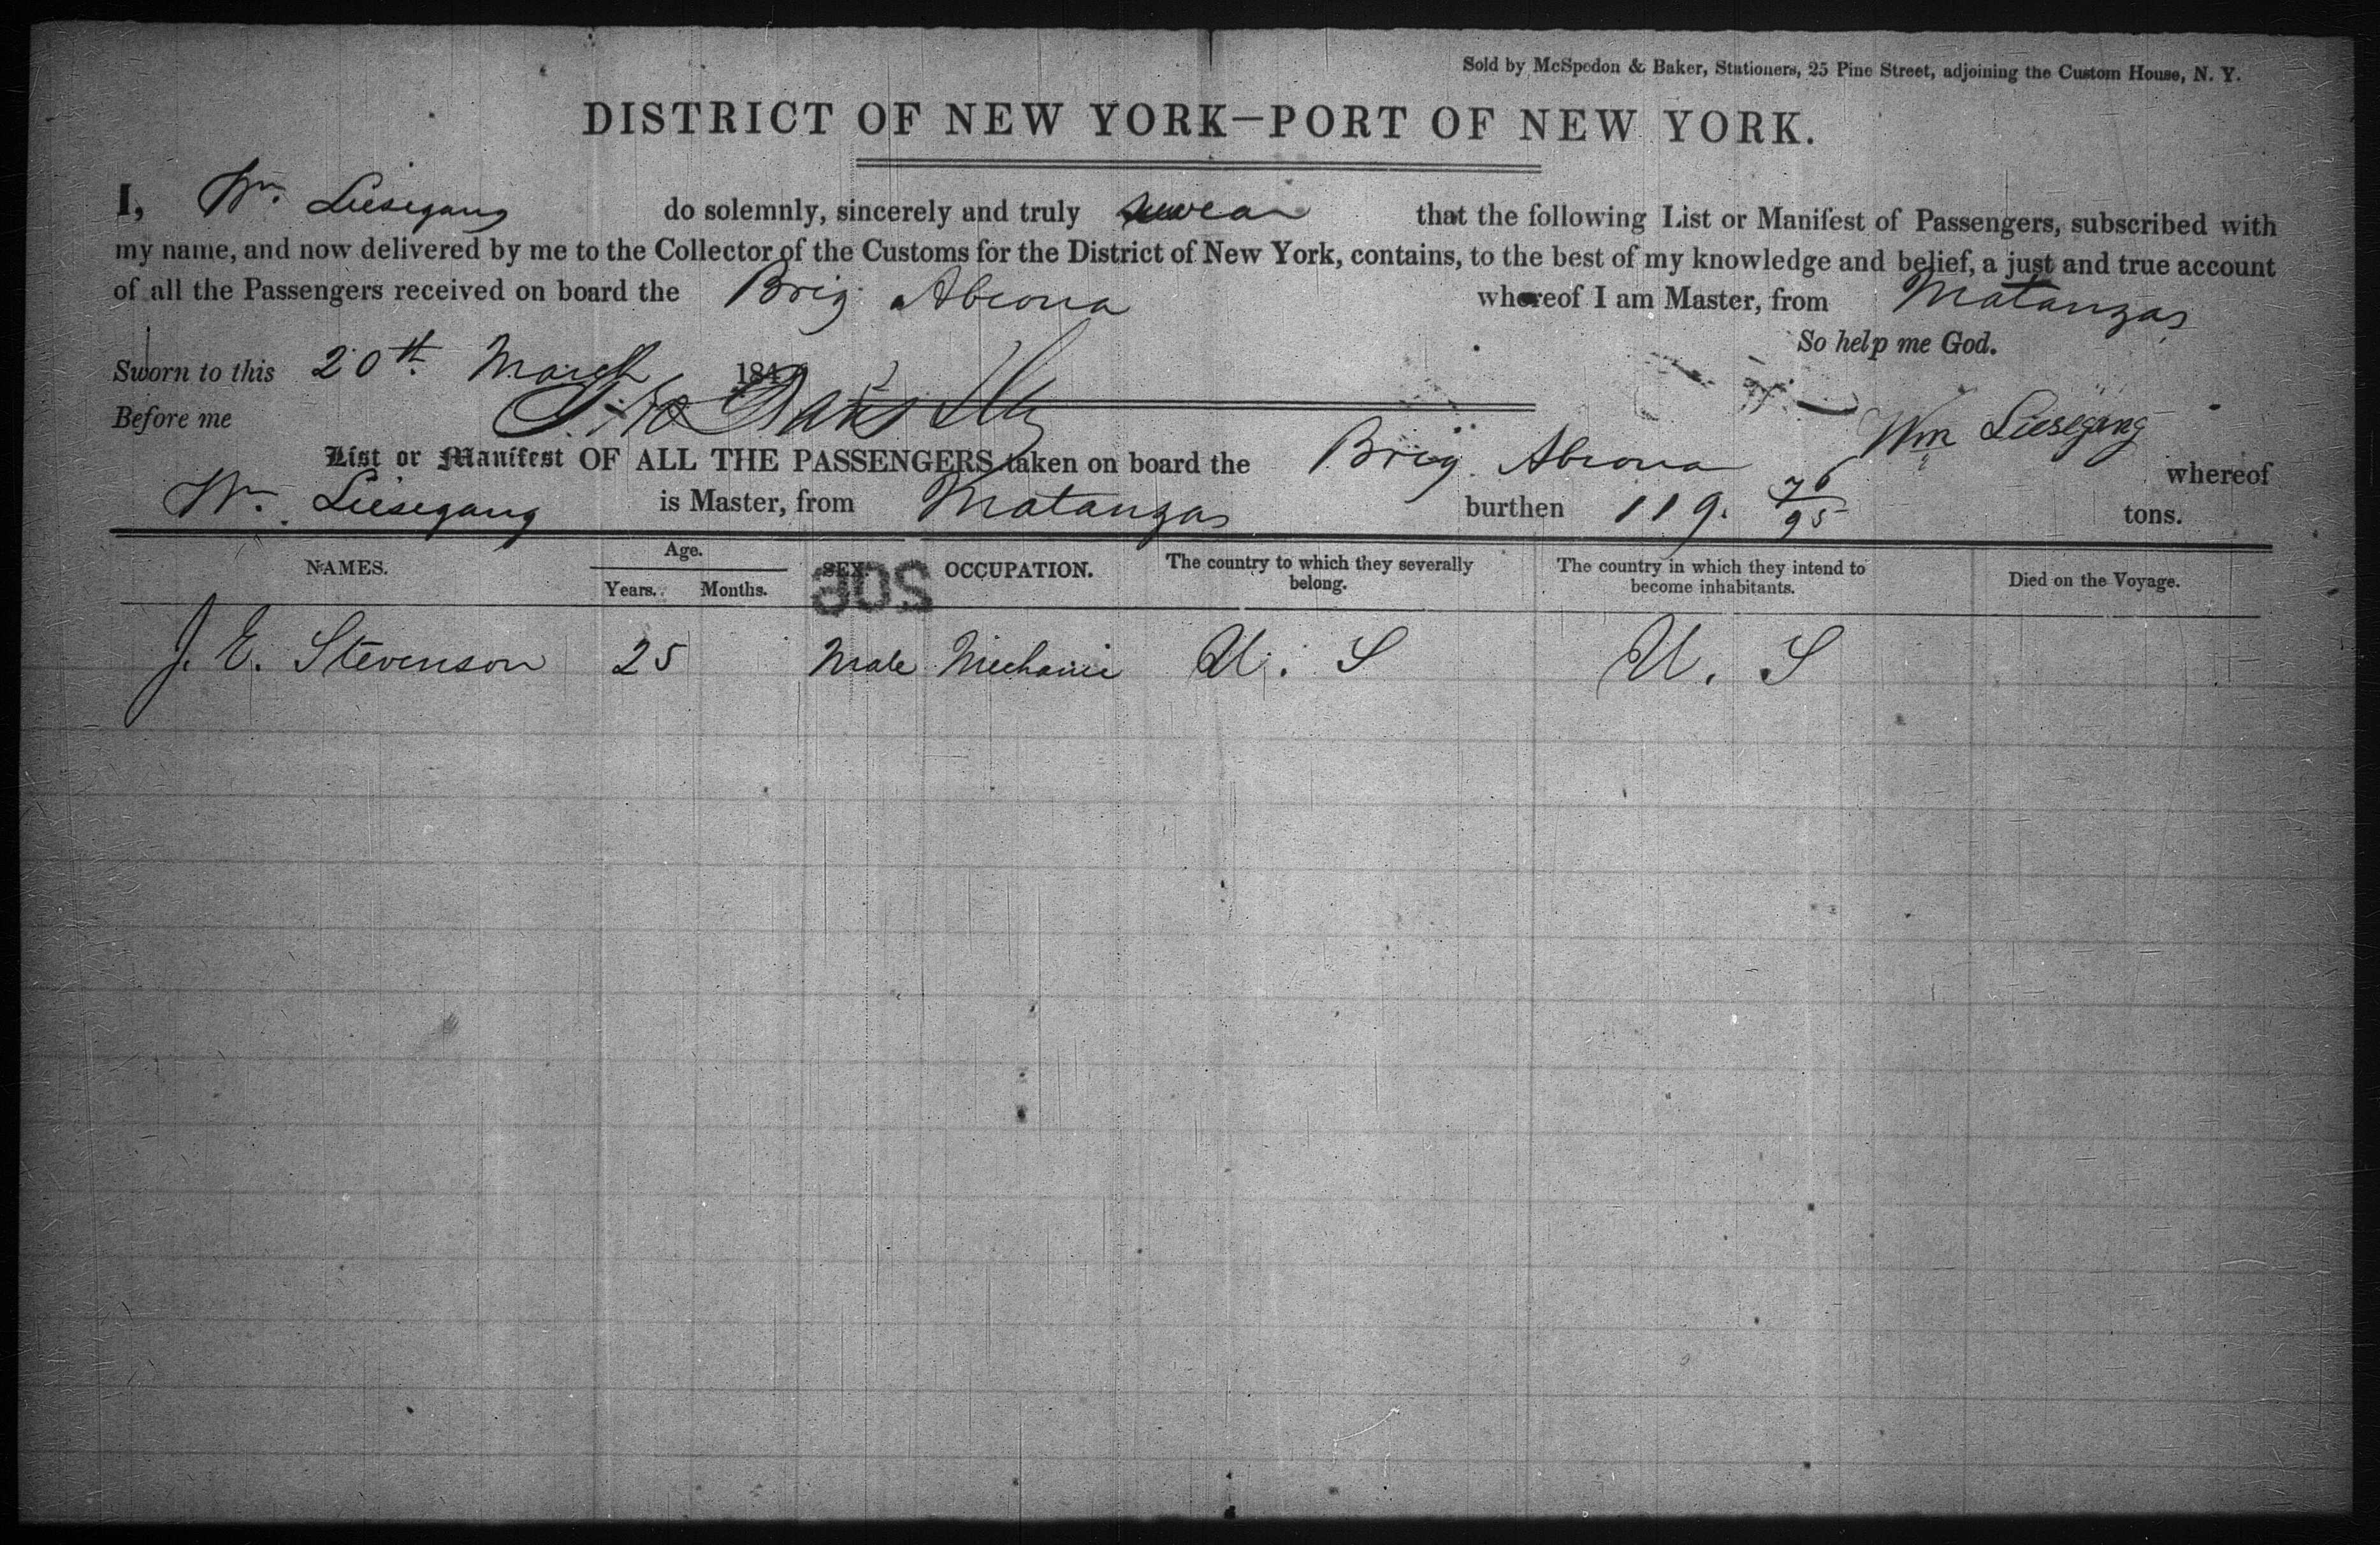 Sold by McSpedon & Baker, Stationers, 25 Pine Street, adjoining the Custom House, N. Y.
DISTRICT OF NEW YORK—PORT OF NEW YORK.
I, Wm. Liesegang do solemnly, sincerely and truly swear that the following List or Manifest of Passengers, subscribed with
my name, and now delivered by me to the Collector of the Customs for the District of New York, contains, to the best of my knowledge and belief, a just and true account
of all the Passengers received on board the Brig Abrona whereof I am Master, from Matanzas
So help me God.
Sworn to this 20th. March 184
Before me
Wm Liesegang
List or Manifest OF ALL THE PASSENGERS taken on board the Brig Abrona whereof
Wm. Liesegang is Master, from Matanzas burthen 119. 76/95 tons.
NAMES. Age. Years. Months. SEX. OCCUPATION. The country to which they severally belong. The country in which they intend to become inhabitants. Died on the Voyage.
206
J. E. Stevenson 25 Male Mechanic U. S U. S